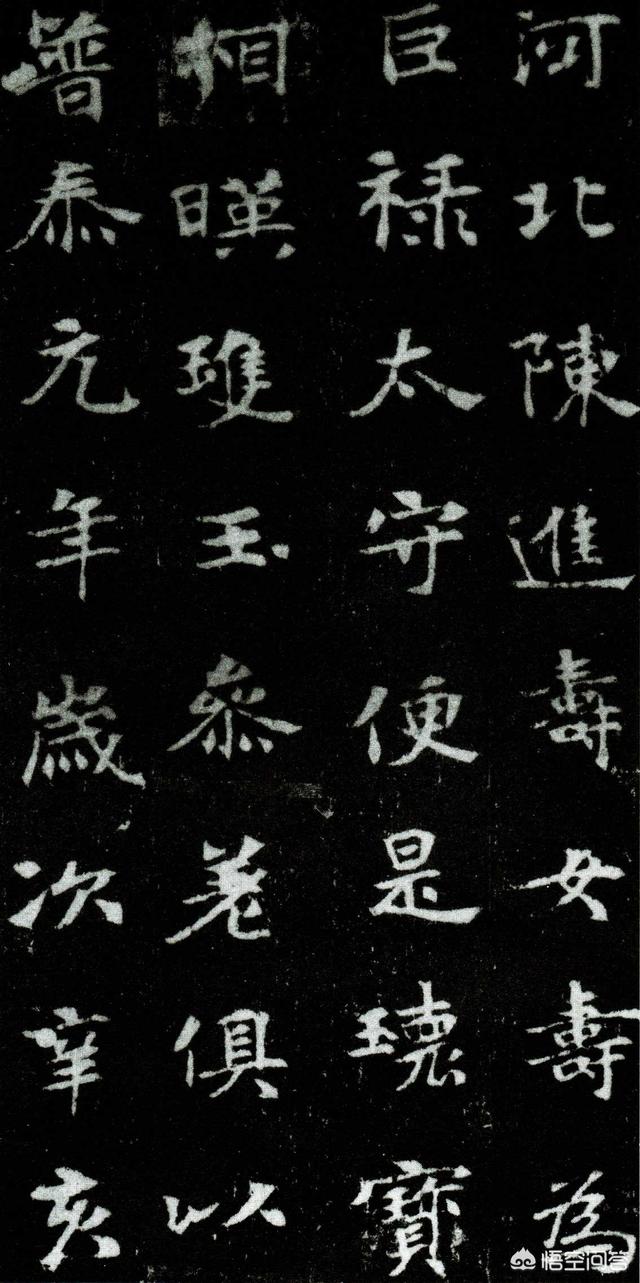 河北陳進壽女壽為
巨祿太守便是瓌寶
相暎瑾玉參差俱以
普泰元年歲次辛亥
悟空问答